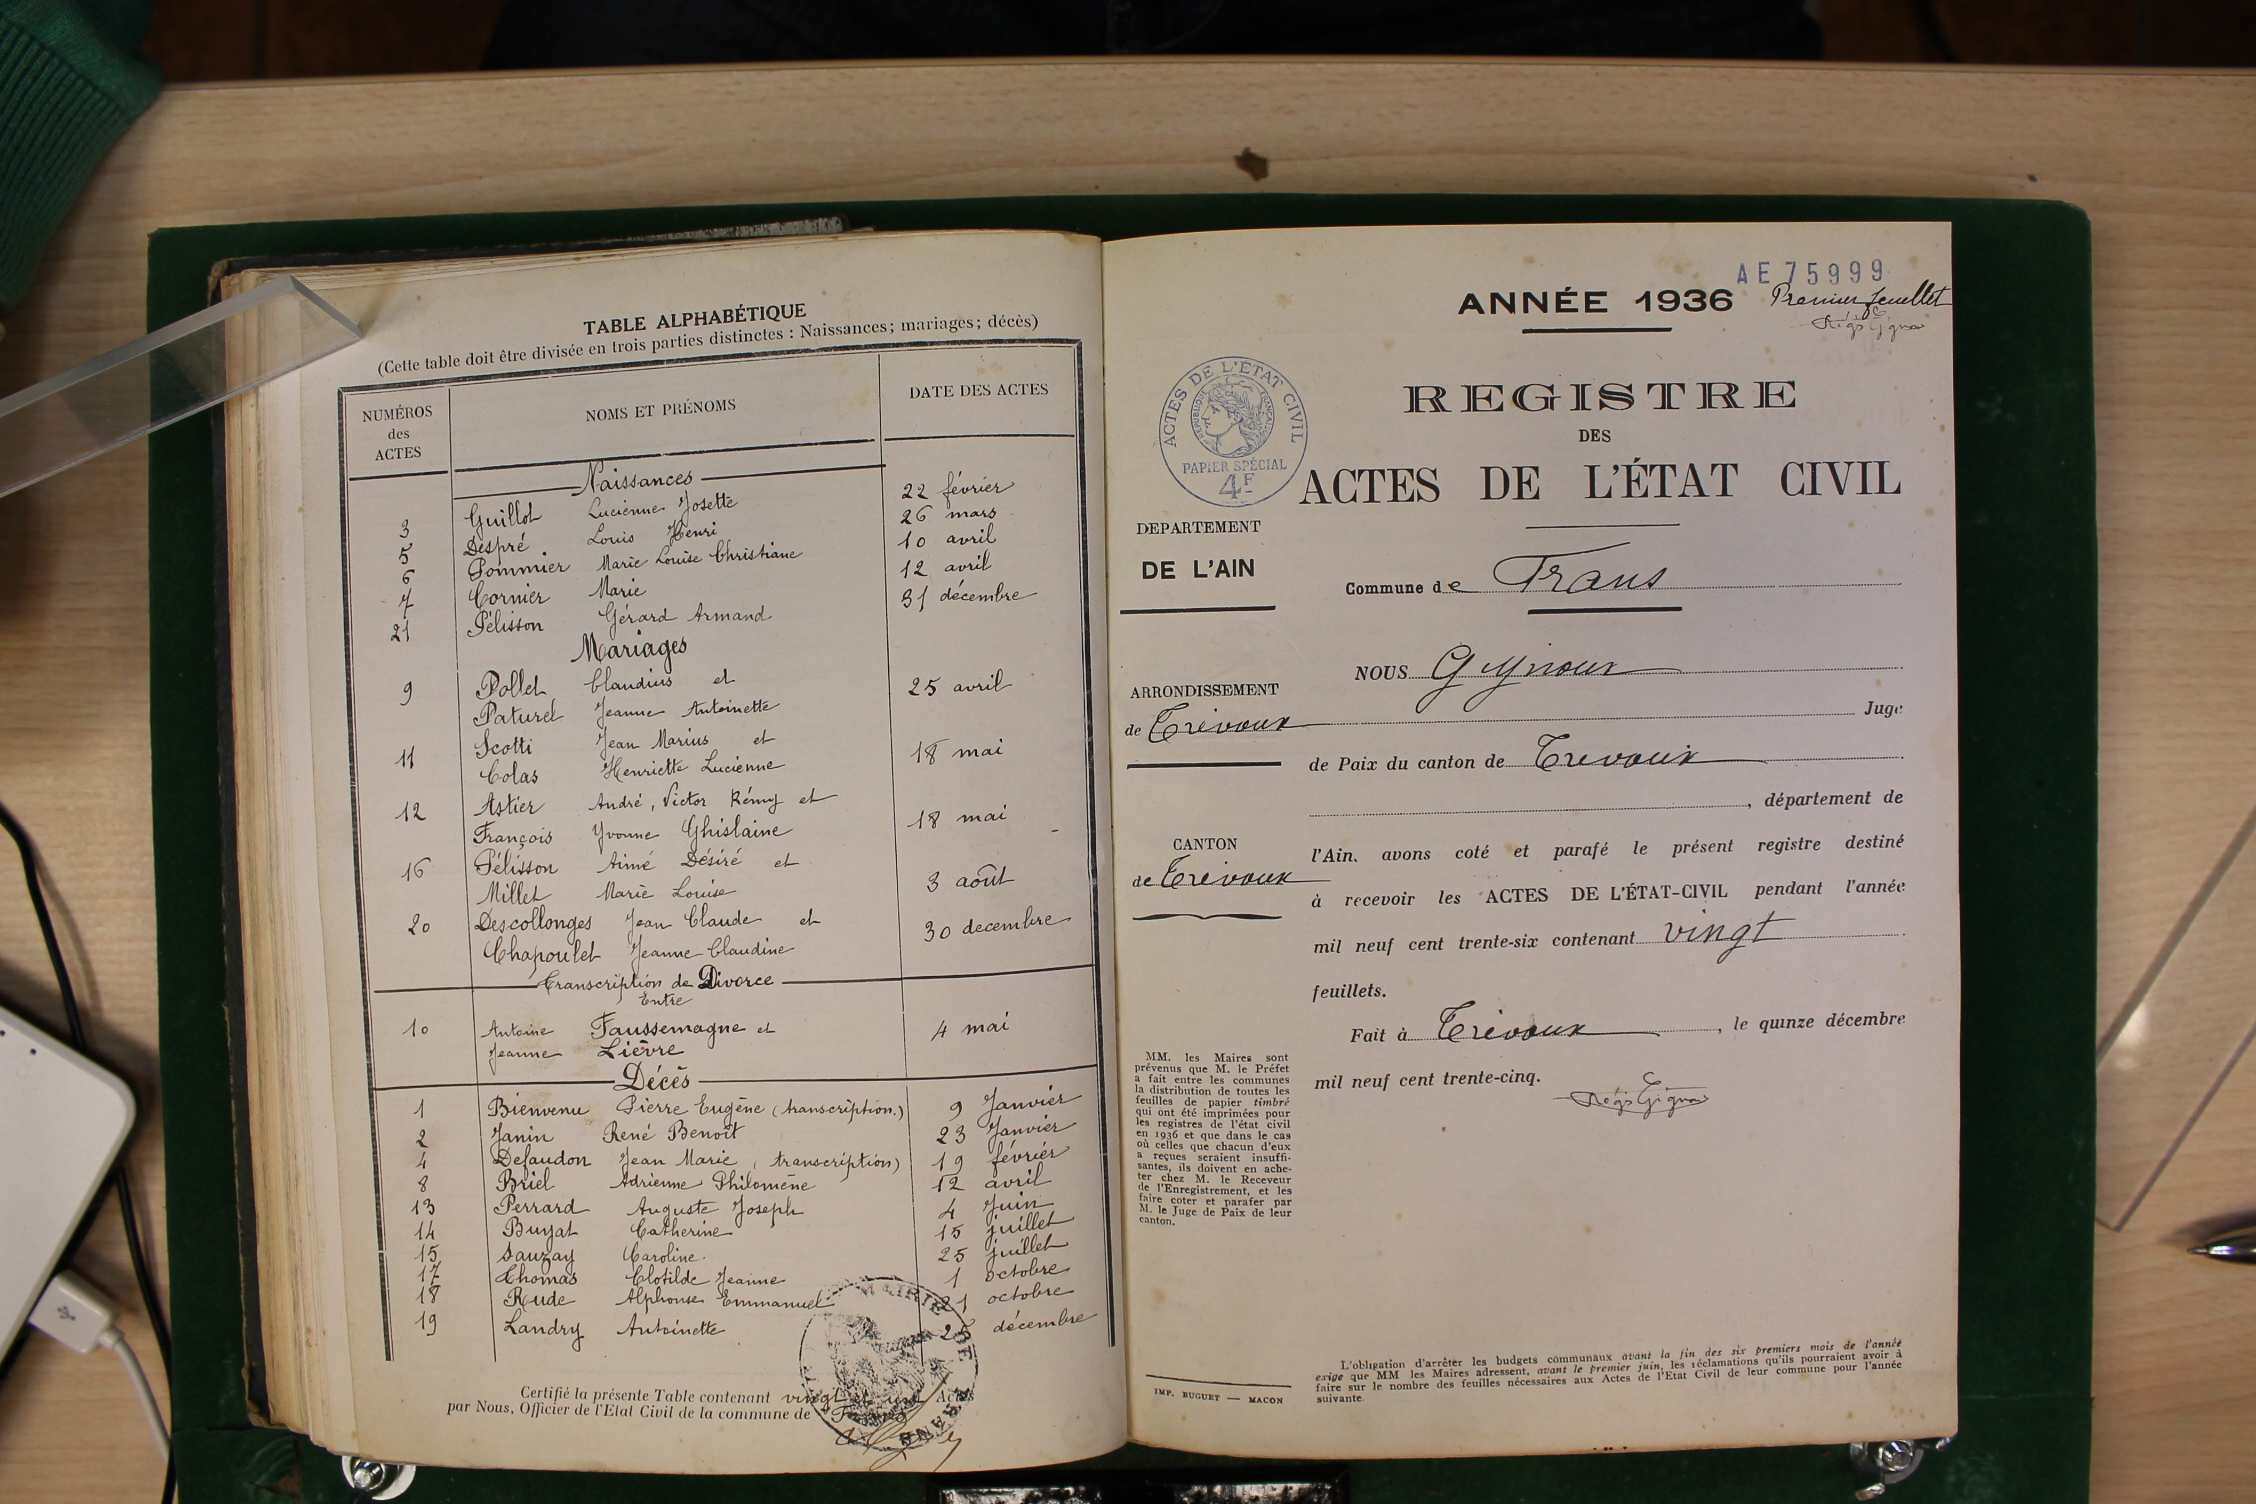 TABLE ALPHABÉTIQUE
(Cette table doit être divisée en trois parties distinctes : Naissances; mariages; décès)
NUMÉROS des ACTES NOMS ET PRÉNOMS DATE DES ACTES
Naissances
3 Guillot Lucienne Josette 22 février
5 Despré Louis Henri 26 mars
6 Pommier Marie Louise Christiane 10 avril
7 Cornier Marie 12 avril
21 Pélisson Gérard Armand 31 décembre
Mariages
9 Pollet Claudius et 25 avril
Paturel Jeanne Antoinette
11 Scotti Jean Marius et 18 mai
Colas Henriette Lucienne
12 Astier André, Victor Rémy et 18 mai
François Yvonne Ghislaine
16 Pélisson Aimé Désiré et 3 août
Millet Marie Louise
20 Descollonges Jean Claude et 30 decembre
Chapoulet Jeanne Claudine
Transcription de Divorce
Entre
10 Antoine Faussemagne et 4 mai
Jeanne Lièvre
Décès
1 Bienvenu Pierre Eugène (transcription.) 9 Janvier
2 Janin René Benoît 23 Janvier
4 Defaudon Jean Marie, transcription) 19 février
8 Briel Adrienne Philomène 12 avril
13 Perrard Auguste Joseph 4 Juin
14 Buyat Catherine 15 juillet
15 Sauzay Caroline. 25 juillet
17 Thomas Clotilde Jeanne 1 octobre
18 Rude Alphonse Emmanuel 21 octobre
19 Landry Antoinette décembre
Certifié la présente Table contenant vingt et un Actes
par Nous, Officier de l'Etat Civil de la commune de
MAIRIE DE TRANS
AE 75999
ANNÉE 1936 Premier feuillet
Régis Gignoux
REGISTRE
DES
ACTES DE L'ÉTAT CIVIL
ACTES DE L'ÉTAT CIVIL
RÉPUBLIQUE FRANÇAISE
PAPIER SPÉCIAL
4F
DEPARTEMENT
DE L'AIN
Commune de Trans
NOUS Gignoux
ARRONDISSEMENT
de Trévoux
Juge
de Paix du canton de Trevoux
, département de
CANTON
de Trévoux
l'Ain, avons coté et parafé le présent registre destiné
à recevoir les ACTES DE L'ÉTAT-CIVIL pendant l'année
mil neuf cent trente-six contenant vingt
feuillets.
Fait à Trévoux, le quinze décembre
mil neuf cent trente-cinq.
Régis Gignoux
MM. les Maires sont
prévenus que M. le Préfet
a fait entre les communes
la distribution de toutes les
feuilles de papier timbré
qui ont été imprimées pour
les registres de l'état civil
en 1936 et que dans le cas
où celles que chacun d'eux
a reçues seraient insuffi-
santes, ils doivent en ache-
ter chez M. le Receveur
de l'Enregistrement, et les
faire coter et parafer par
M. le Juge de Paix de leur
canton.
IMP. BUGUET — MACON
L'obligation d'arrêter les budgets communaux avant la fin des six premiers mois de l'année
exige que MM les Maires adressent, avant le premier juin, les réclamations qu'ils pourraient avoir à
faire sur le nombre des feuilles nécessaires aux Actes de l'Etat Civil de leur commune pour l'année
suivante.